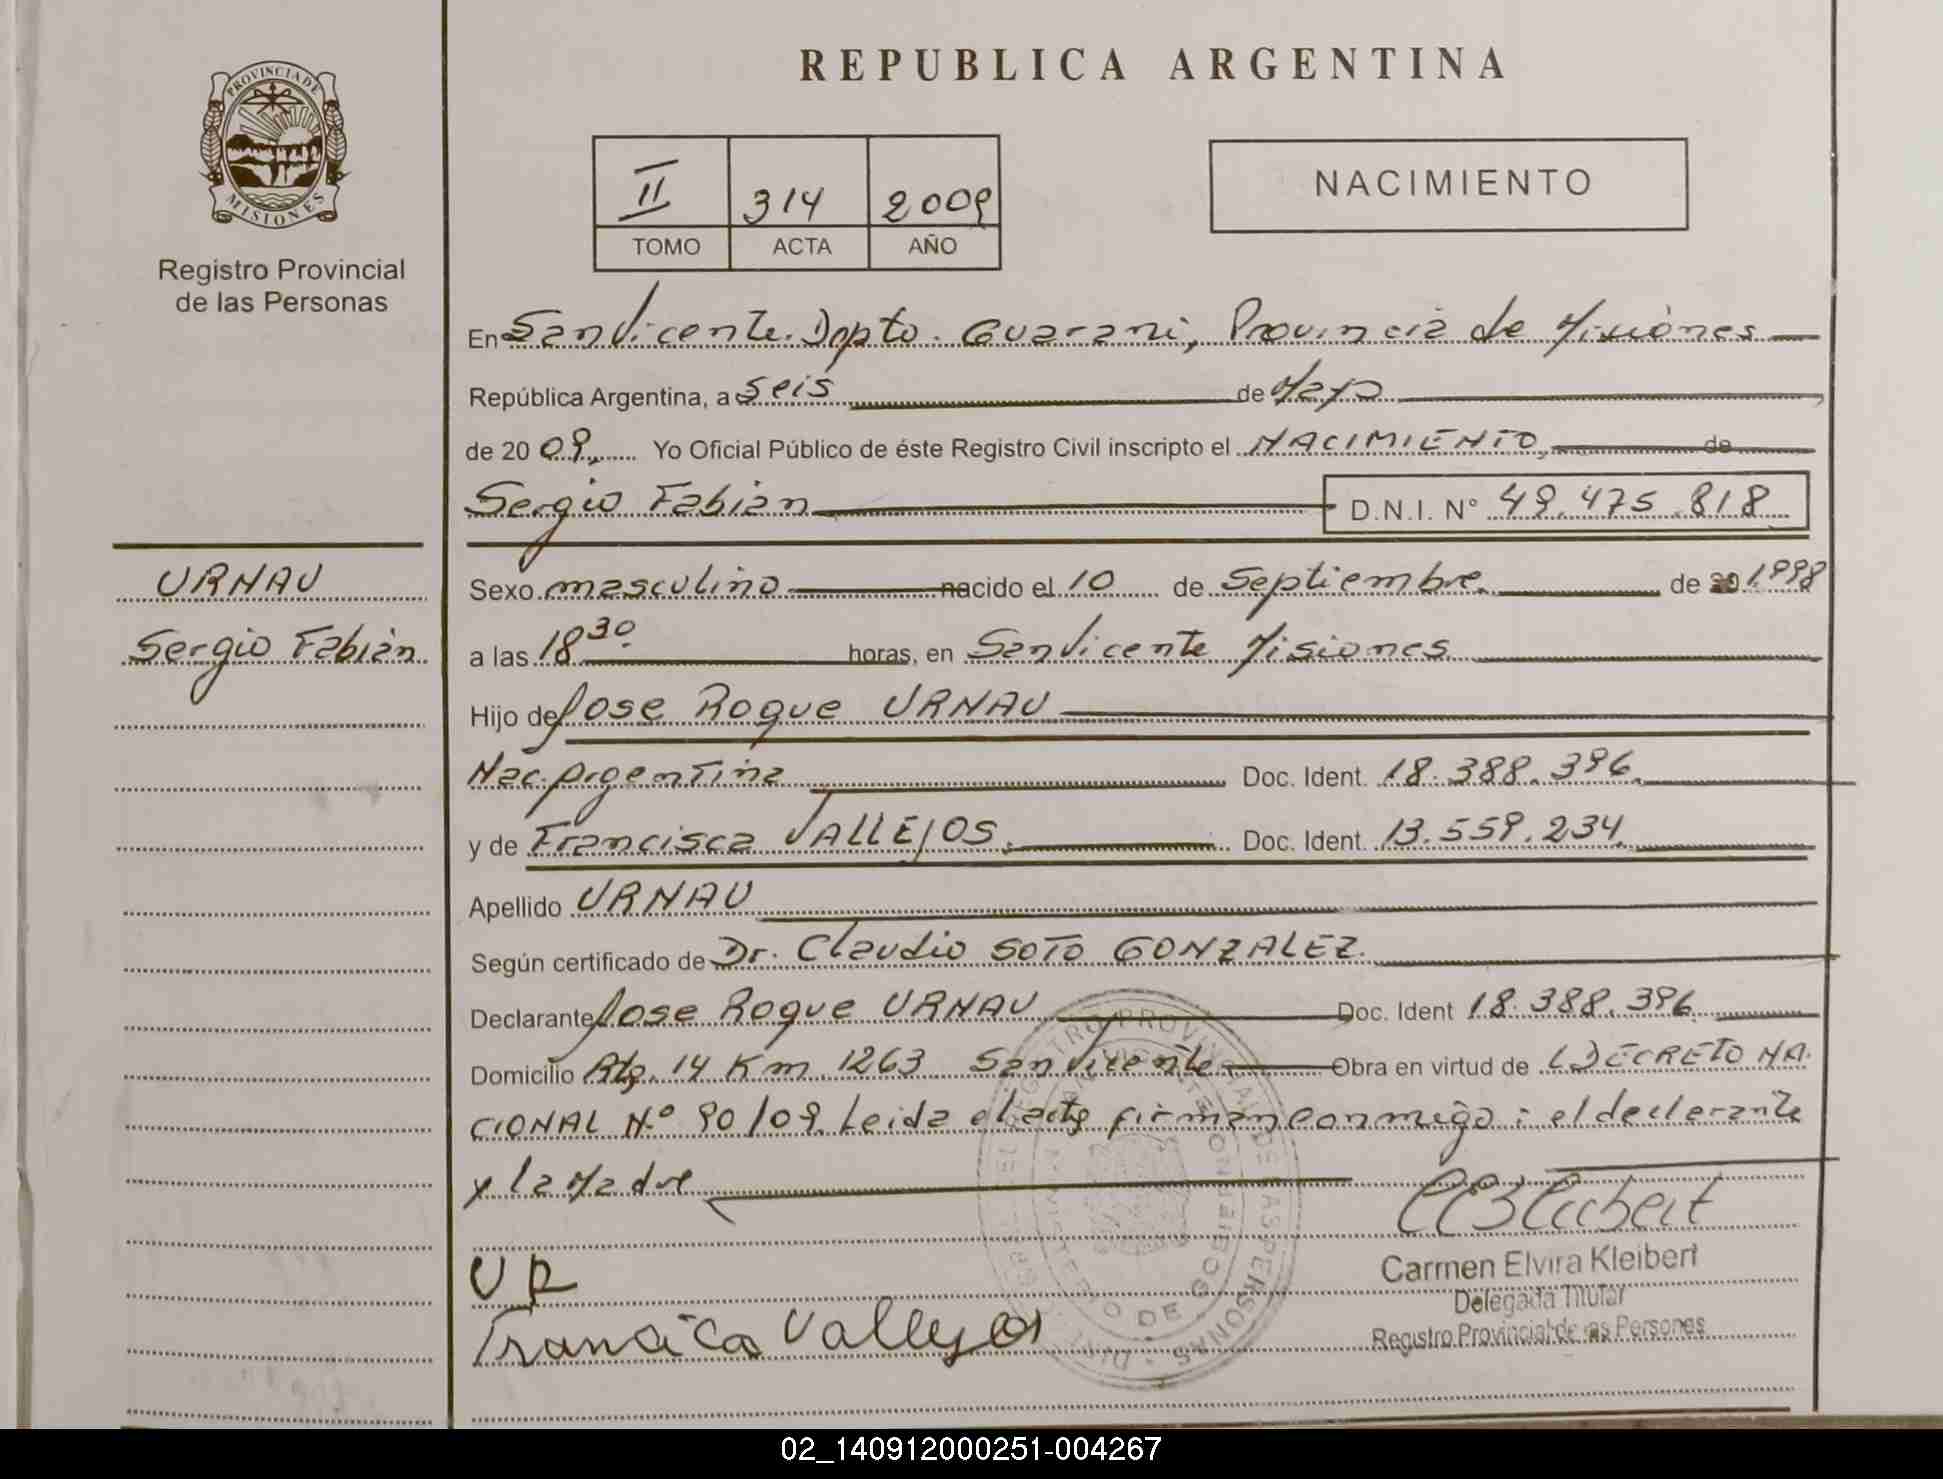 REPUBLICA ARGENTINA
PROVINCIA DE
MISIONES
Registro Provincial
de las Personas
II 314 2009
TOMO ACTA AÑO
NACIMIENTO
En San Vicente. Dpto. Guarani, Provincia de Misiones
República Argentina, a seis de Mayo
de 20 09, Yo Oficial Público de éste Registro Civil inscripto el NACIMIENTO, de
Sergio Fabian D.N.I. N° 49.475.818
URNAU
Sergio Fabián
Sexo masculino nacido el 10 de Septiembre de 20 1998
a las 18 30 horas, en San Vicente Misiones
Hijo de Jose Roque URNAU
Nac. Argentina Doc. Ident. 18.388.396.
y de Francisca VALLEJOS. Doc. Ident. 13.559.234.
Apellido URNAU
Según certificado de Dr. Claudio SOTO GONZALEZ.
Declarante Jose Roque URNAU Doc. Ident 18.388.396
Domicilio Rta. 14 Km 1263 San Vicente Obra en virtud de DECRETO NA.
CIONAL N.° 90/09. Leida el acta firman conmigo: el declarante
y la Madre
UR
Francica Vallejos
Carmen Elvira Kleibert
Delegada Titular
Registro Provincial de las Personas
02_140912000251-004267